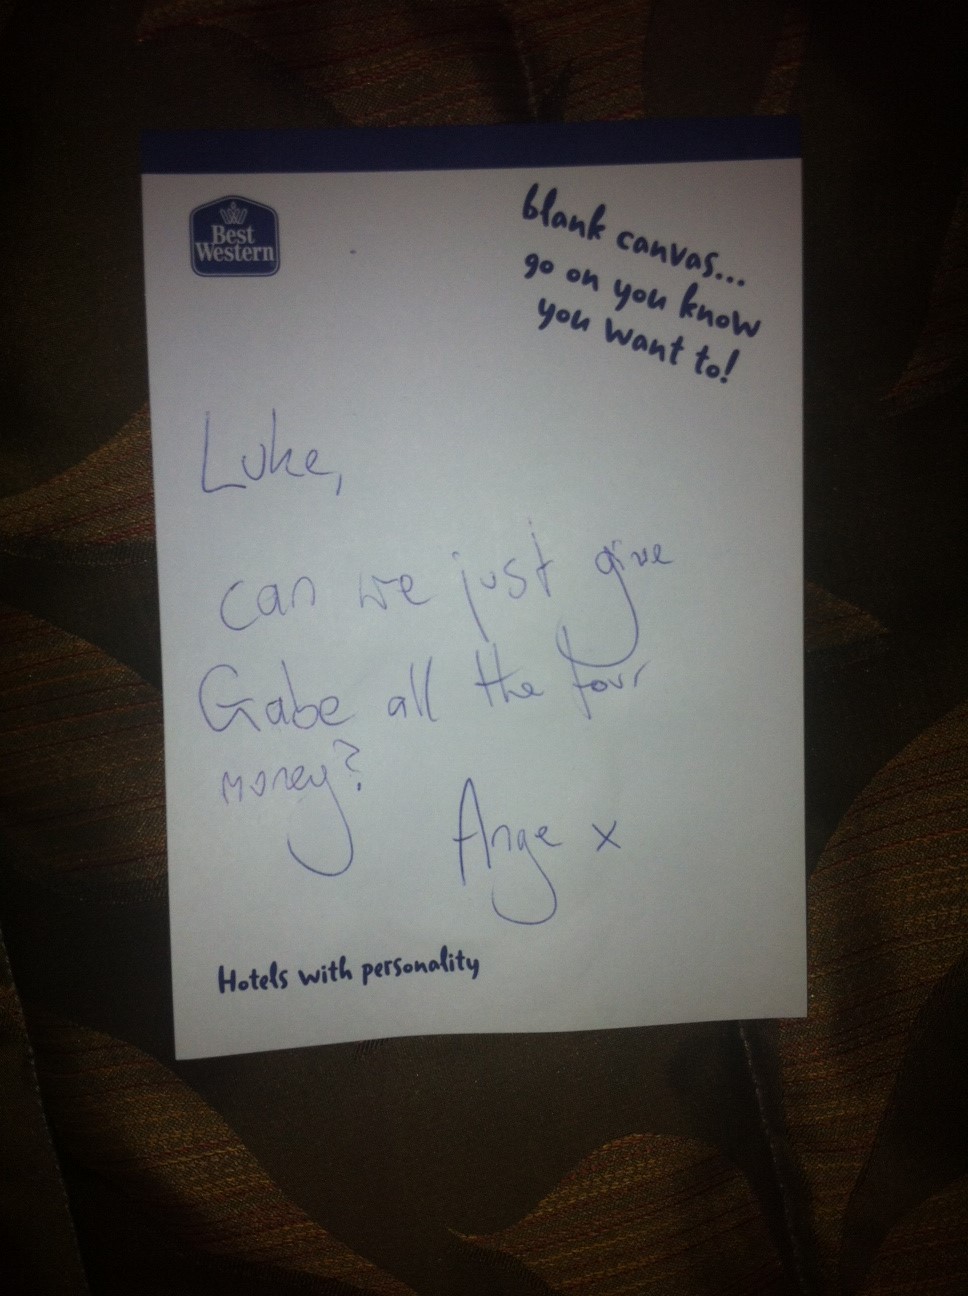 Best
Western
blank canvas...
go on you know
you want to!
Luke,
can we just give
Gabe all the tour
money?
Ange x
Hotels with personality